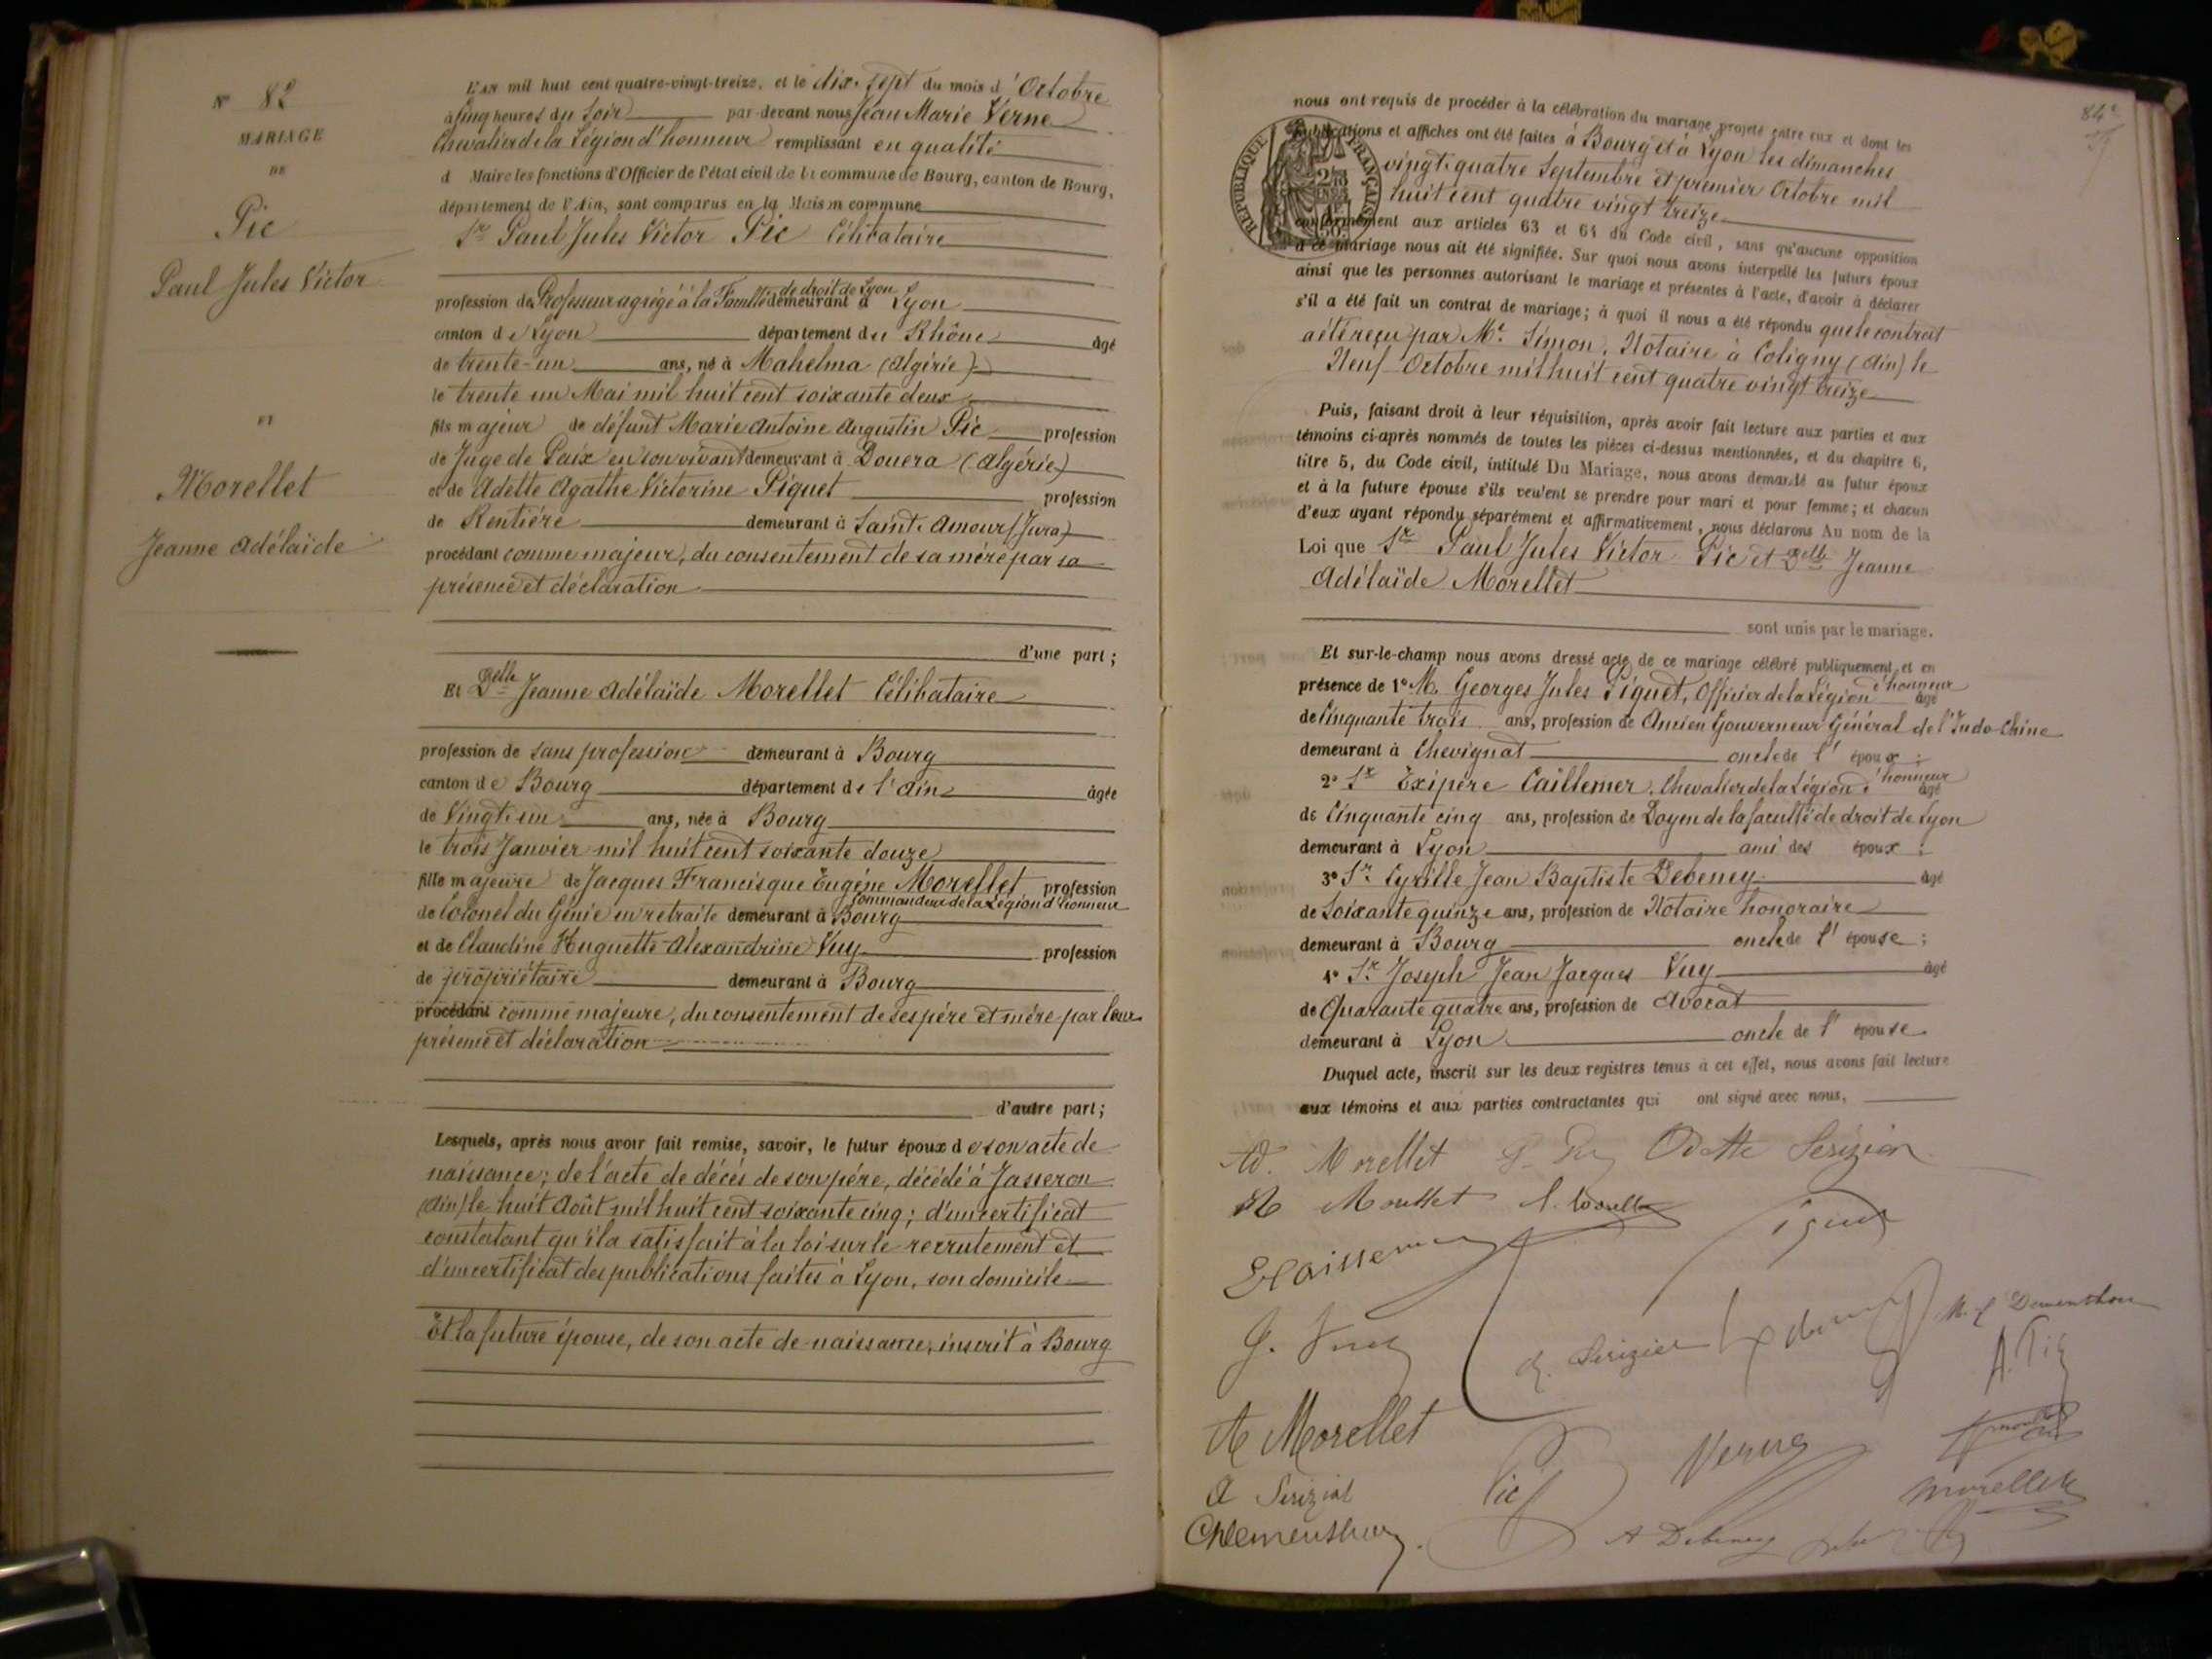 N° 82
MARIAGE
DE
Pic
Paul Jules Victor
ET
Morellet
Jeanne Adélaïde
L'AN mil huit cent quatre-vingt-treize, et le dix-sept du mois d'Octobre
à cinq heures du soir par-devant nous Jean Marie Verne
Chevalier de la Légion d'honneur remplissant en qualité
d Maire les fonctions d'Officier de l'état civil de la commune de Bourg, canton de Bourg,
département de l'Ain, sont comparus en la Maison commune
Sr Paul Jules Victor Pic Célibataire
profession de Professeur agrégé à la Faculté de droit de Lyon demeurant à Lyon
canton de Lyon département du Rhône âgé
de trente-un ans, né à Mahelma (Algérie)
le trente un Mai mil huit cent soixante deux
fils majeur de défunt Marie Antoine Augustin Pic profession
de Juge de Paix en son vivant demeurant à Douera (Algérie)
et de Adette Agathe Victorine Piquet profession
de Rentière demeurant à Saint-Amour (Jura)
procédant comme majeur, du consentement de sa mère par sa
présence et déclaration
d'une part;
Et Delle Jeanne Adélaïde Morellet Célibataire
profession de sans profession demeurant à Bourg
canton de Bourg département de l'Ain âgée
de Vingt-un ans, née à Bourg
le trois Janvier mil huit cent soixante douze
fille majeure de Jacques Francisque Eugène Morellet profession
de Colonel du Génie en retraite Commandeur de la Légion d'honneur demeurant à Bourg
et de Claudine Huguette Alexandrine Vuy profession
de propriétaire demeurant à Bourg
procédant comme majeure, du consentement de ses père et mère par leur
présence et déclaration
d'autre part;
Lesquels, après nous avoir fait remise, savoir, le futur époux de son acte de
naissance; de l'acte de décès de son père, décédé à Jasseron
(Ain) le huit Août mil huit cent soixante cinq; d'un certificat
constatant qu'il a satisfait à la loi sur le recrutement et
d'un certificat des publications faites à Lyon, son domicile
Et la future épouse, de son acte de naissance, inscrit à Bourg
84
nous ont requis de procéder à la célébration du mariage projeté entre eux et dont les
publications et affiches ont été faites à Bourg et à Lyon les dimanches
vingt-quatre Septembre et premier Octobre mil
huit cent quatre vingt treize
RÉPUBLIQUE FRANÇAISE
conformément aux articles 63 et 64 du Code civil, sans qu'aucune opposition
à ce mariage nous ait été signifiée. Sur quoi nous avons interpellé les futurs époux
ainsi que les personnes autorisant le mariage et présentes à l'acte, d'avoir à déclarer
s'il a été fait un contrat de mariage; à quoi il nous a été répondu que le contrat
a été reçu par Me Simon, Notaire à Coligny (Ain) le
Neuf Octobre mil huit cent quatre vingt treize
Puis, faisant droit à leur réquisition, après avoir fait lecture aux parties et aux
témoins ci-après nommés de toutes les pièces ci-dessus mentionnées, et du chapitre 6,
titre 5, du Code civil, intitulé Du Mariage, nous avons demandé au futur époux
et à la future épouse s'ils veulent se prendre pour mari et pour femme; et chacun
d'eux ayant répondu séparément et affirmativement, nous déclarons Au nom de la
Loi que Sr Paul Jules Victor Pic et Delle Jeanne
Adélaïde Morellet
sont unis par le mariage.
Et sur-le-champ nous avons dressé acte de ce mariage célébré publiquement, et en
présence de 1° M. Georges Jules Piquet, Officier de la Légion d'honneur âgé
de Cinquante trois ans, profession de Ancien Gouverneur Général de l'Indo-Chine
demeurant à Chevignat oncle de l'époux;
2° Sr Exipère Caillemer, Chevalier de la Légion d'honneur âgé
de Cinquante cinq ans, profession de Doyen de la faculté de droit de Lyon
demeurant à Lyon ami des époux;
3° Sr Cyrille Jean Baptiste Debeney âgé
de Soixante quinze ans, profession de Notaire honoraire
demeurant à Bourg oncle de l'épouse;
4° Sr Joseph Jean Jacques Vuy âgé
de Quarante quatre ans, profession de Avocat
demeurant à Lyon oncle de l'épouse
Duquel acte, inscrit sur les deux registres tenus à cet effet, nous avons fait lecture
aux témoins et aux parties contractantes qui ont signé avec nous,
Ad. Morellet P. Pic Odette Serizian
Morellet
A. Pic
Morellet
Verne
Pic
Morellet
A Debeney